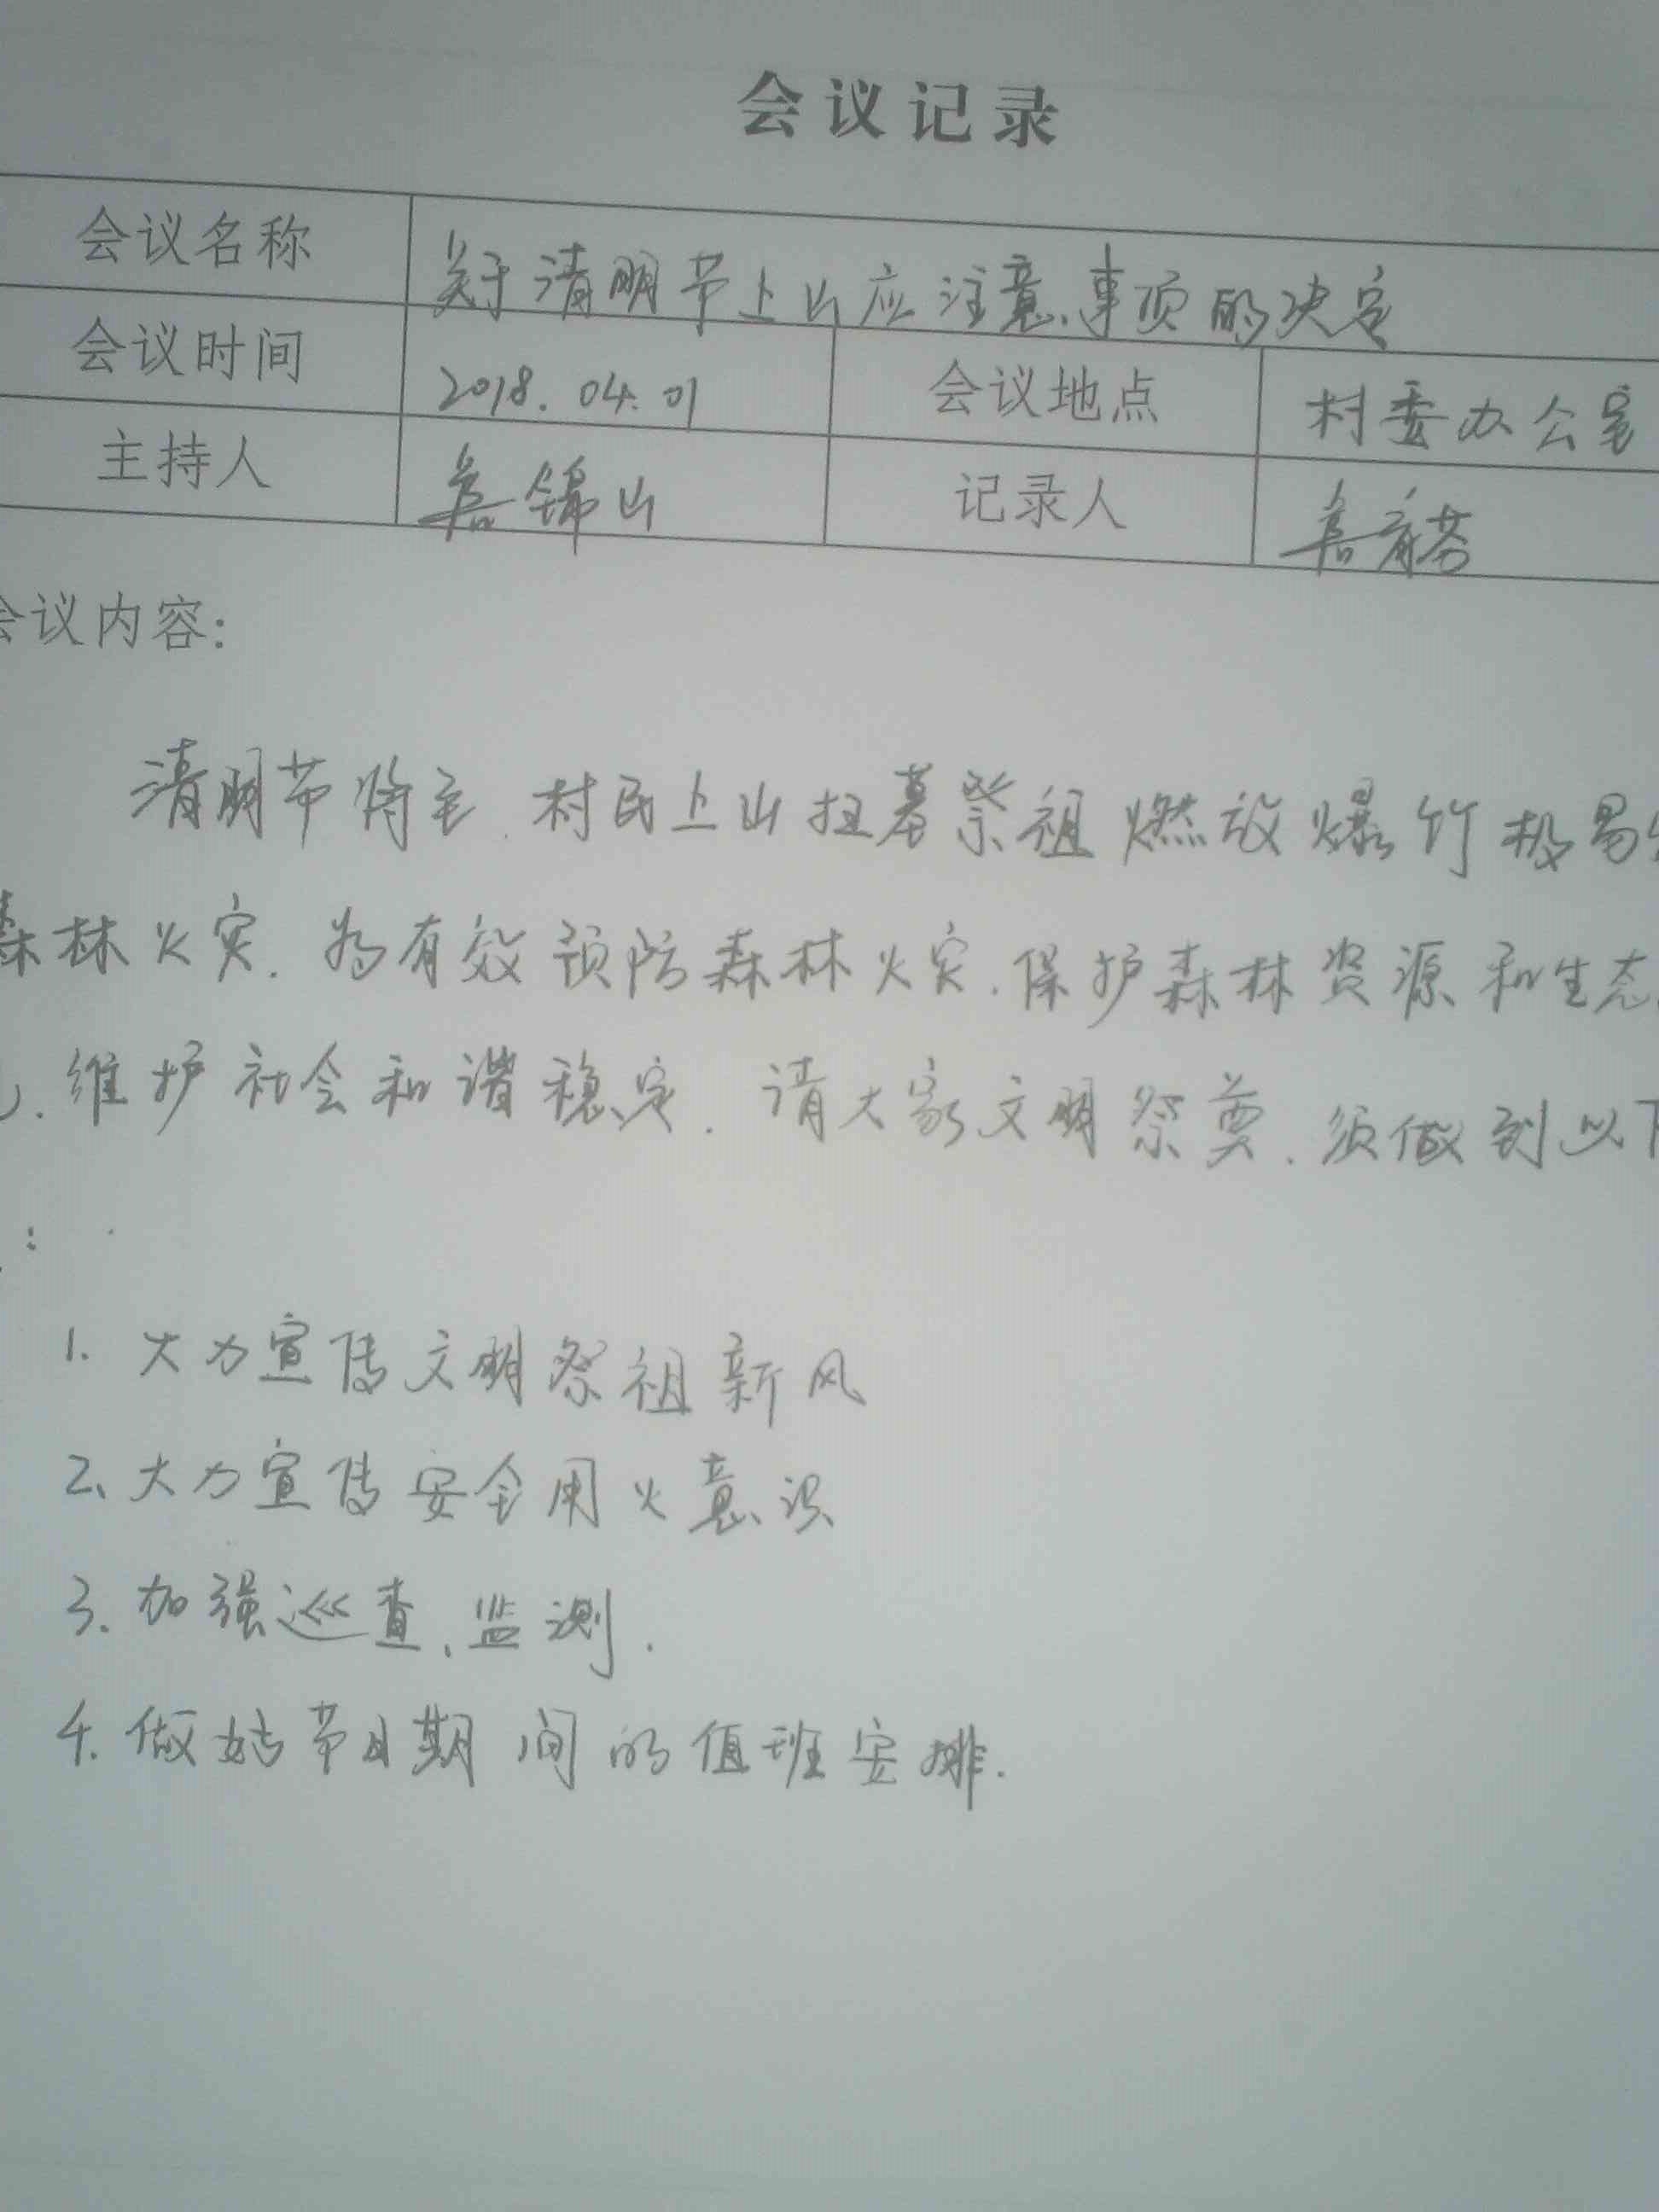 会议记录
会议名称 关于清明节上山应注意事项的决定
会议时间 2018.04.01 会议地点 村委办公室
主持人 锦山 记录人
会议内容:
清明节将至.村民上山扫墓祭祖燃放爆竹极易
森林火灾.为有效预防森林火灾.保护森林资源和生态
.维护社会和谐稳定.请大家文明祭奠.须做到以下
:
1.大力宣传文明祭祖新风
2、大力宣传安全用火意识
3.加强巡查、监测.
4.做好节日期间的值班安排.